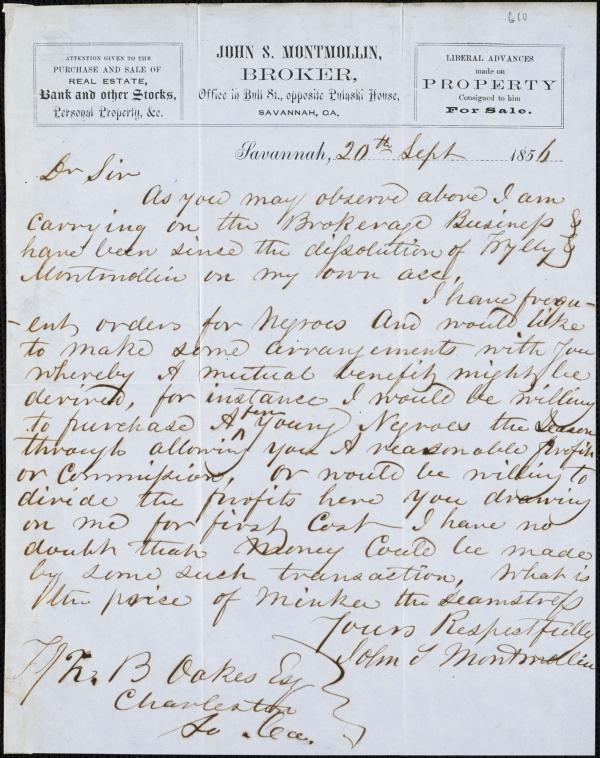 610
ATTENTION GIVEN TO THE
PURCHASE AND SALE OF
REAL ESTATE,
Bank and other Stocks,
Personal Property, &c.
JOHN S. MONTMOLLIN,
BROKER,
Office in Bull St., opposite Pulaski House,
SAVANNAH, GA.
LIBERAL ADVANCES
made on
PROPERTY
Consigned to him
For Sale.
Savannah, 20th Sept 1856
Dr Sir
As you may observe above I am
carrying on the Brokerage Business &
have been since the dissolution of Wylly &
Montmollin on my own acc,
I have frequ-
-ent orders for Negroes and would like
to make some arrangements with you
whereby A mutual benefit might be
derived, for instance I would be willing
to purchase A few young Negroes the season
through allowing you A reasonable profit
or Commission, or would be willing to
divide the profits here you drawing
on me for first Cost I have no
doubt that Money Could be made
by some such transaction, What is
the price of Minkee the seamstress
Yours Respectfully
John S Montmollin
B Oakes Esq
Charleston
So. Ca.